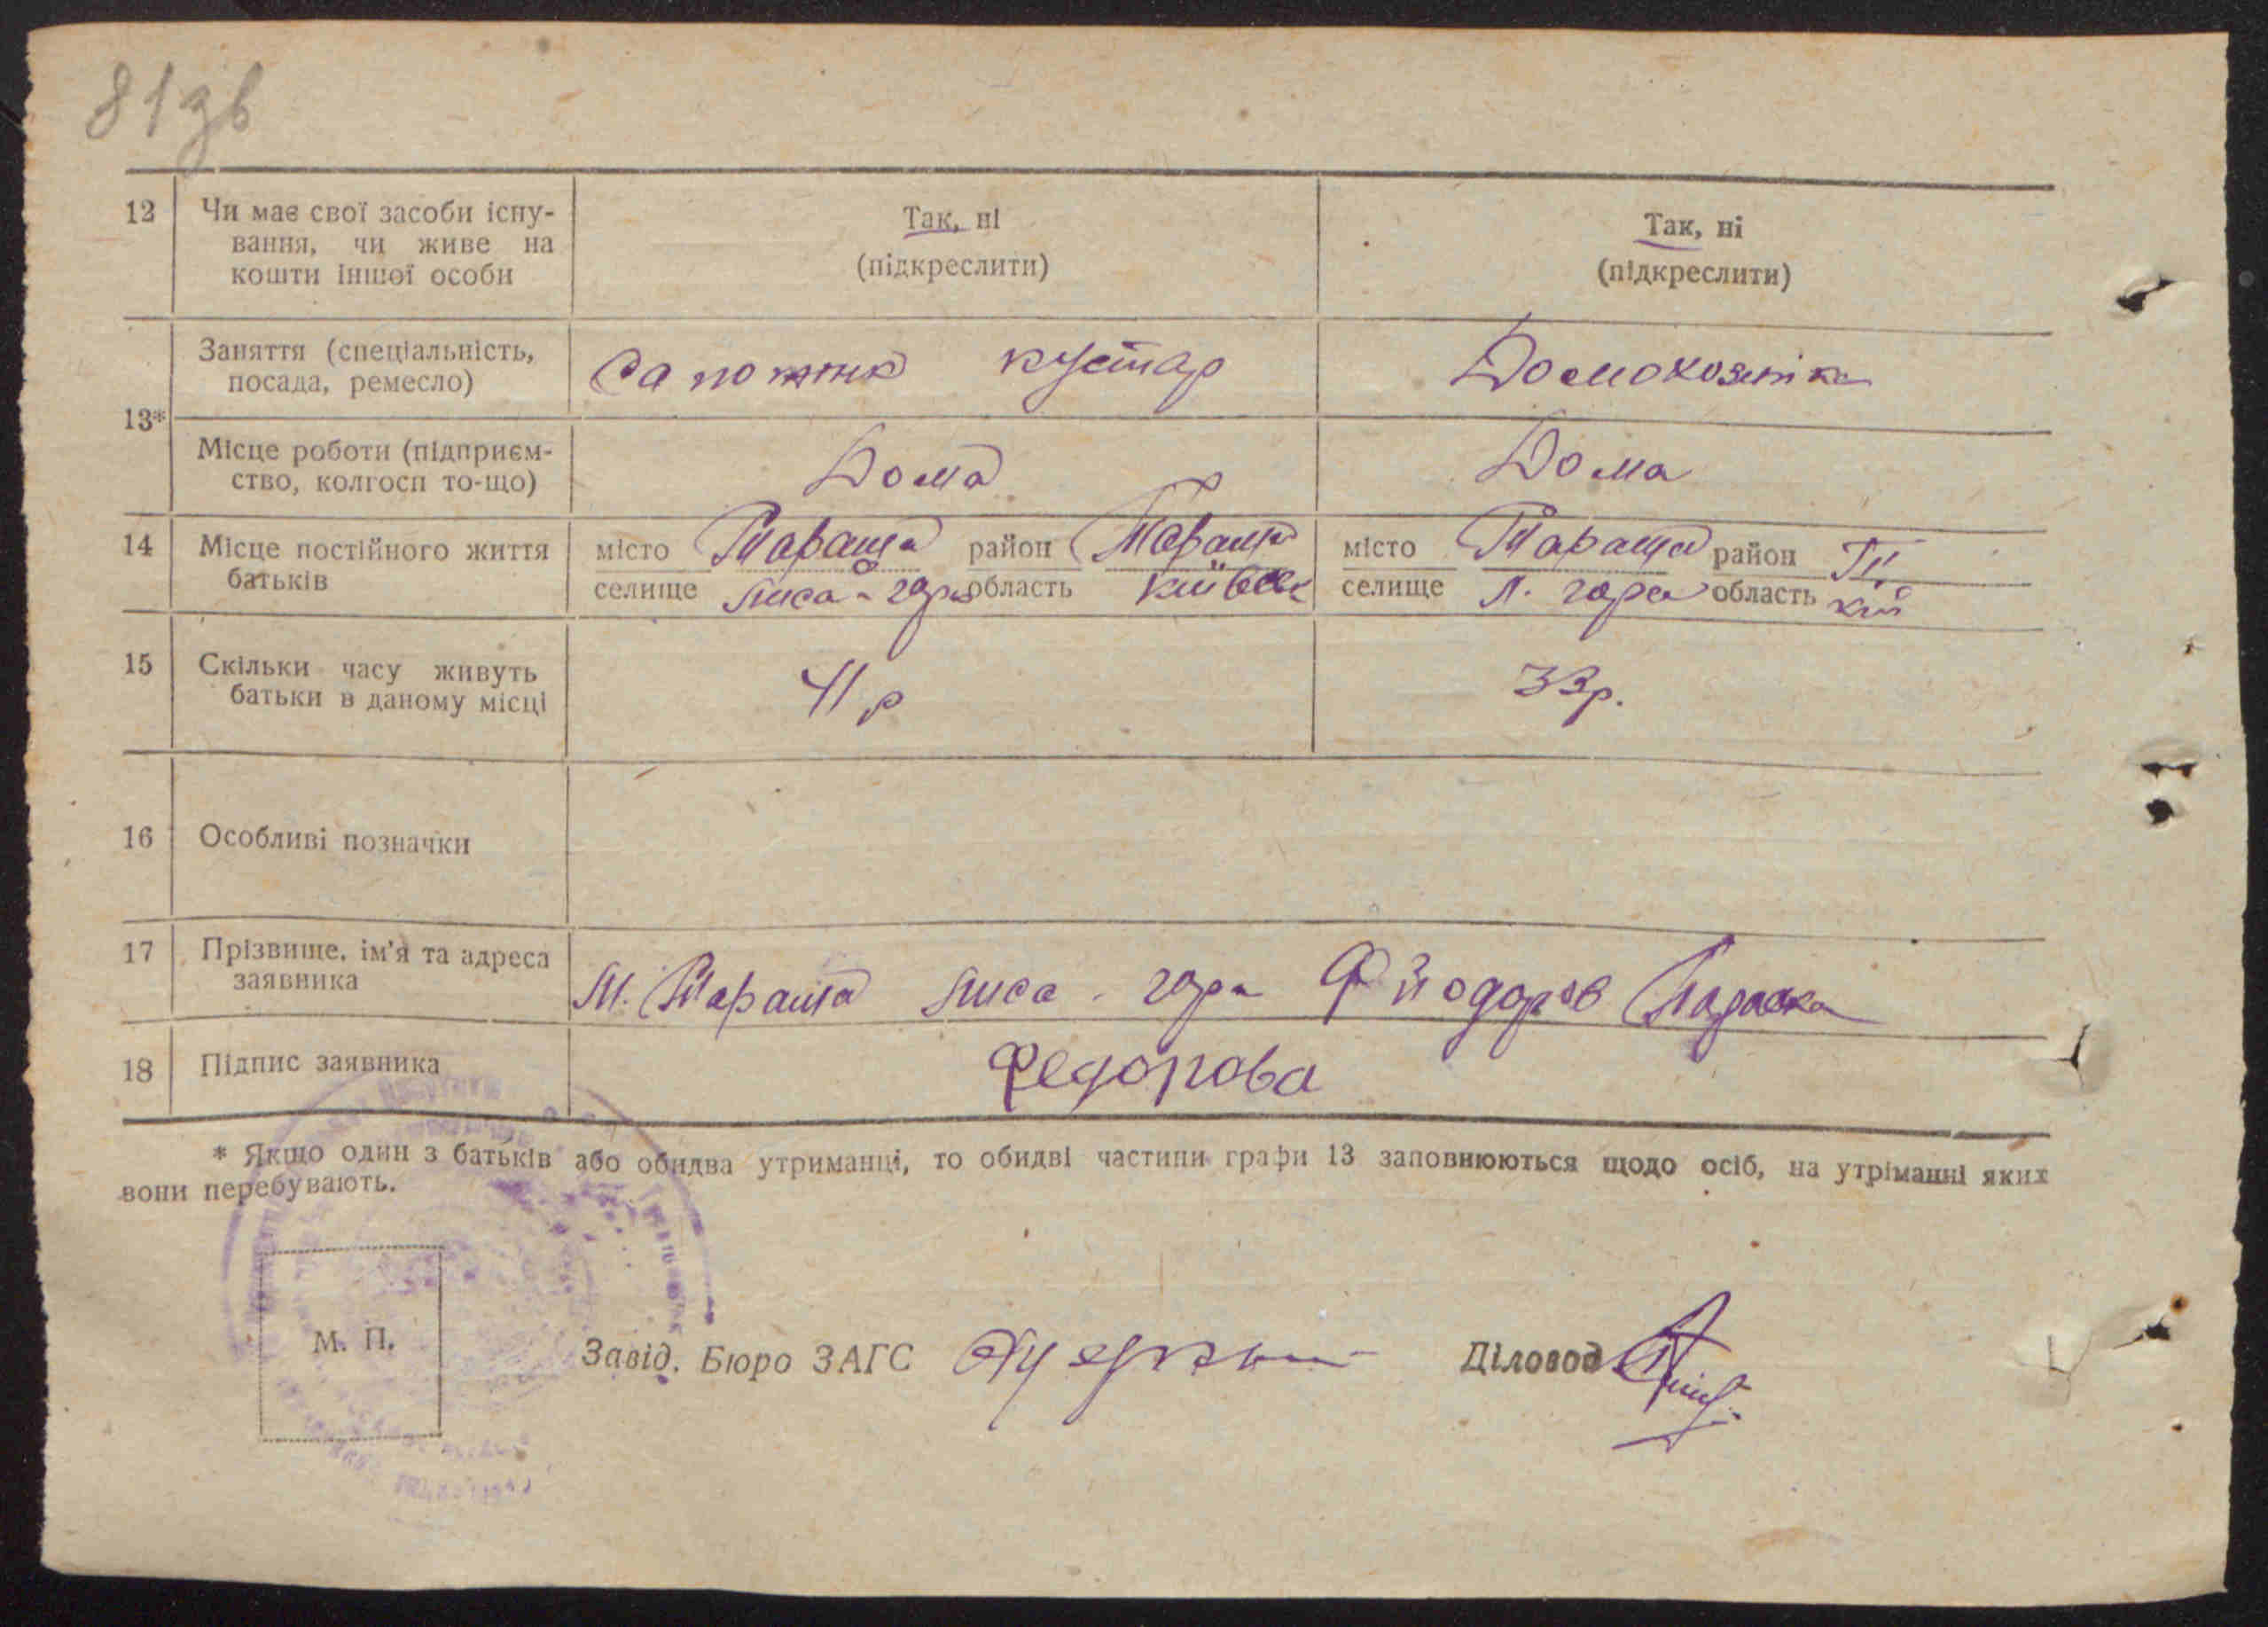 81зв
12 Чи має свої засоби існу-
вання, чи живе на
кошти іншої особи
Так, ні
(підкреслити)
Так, ні
(підкреслити)
13*
Заняття (спеціальність,
посада, ремесло)
Сапожнік кустар
Домохозяйка
Місце роботи (підприєм-
ство, колгосп то-що)
Дома
Дома
14 Місце постійного життя
батьків
місто Тараща район Тараща
селище Лиса-гора область Київськ
місто Тараща район Т.
селище Л. гора область Київ
15 Скільки часу живуть
батьки в даному місці
41 р
33р.
16 Особливі позначки
17 Прізвище, ім'я та адреса
заявника
М. Тараща Лиса-гора Фйодоров Параска
18 Підпис заявника
Федорова
* Якщо один з батьків або обидва утриманці, то обидві частини графи 13 заповнюються щодо осіб, на утріманні яких
вони перебувають.
М. П.
Завід. Бюро ЗАГС
Діловод